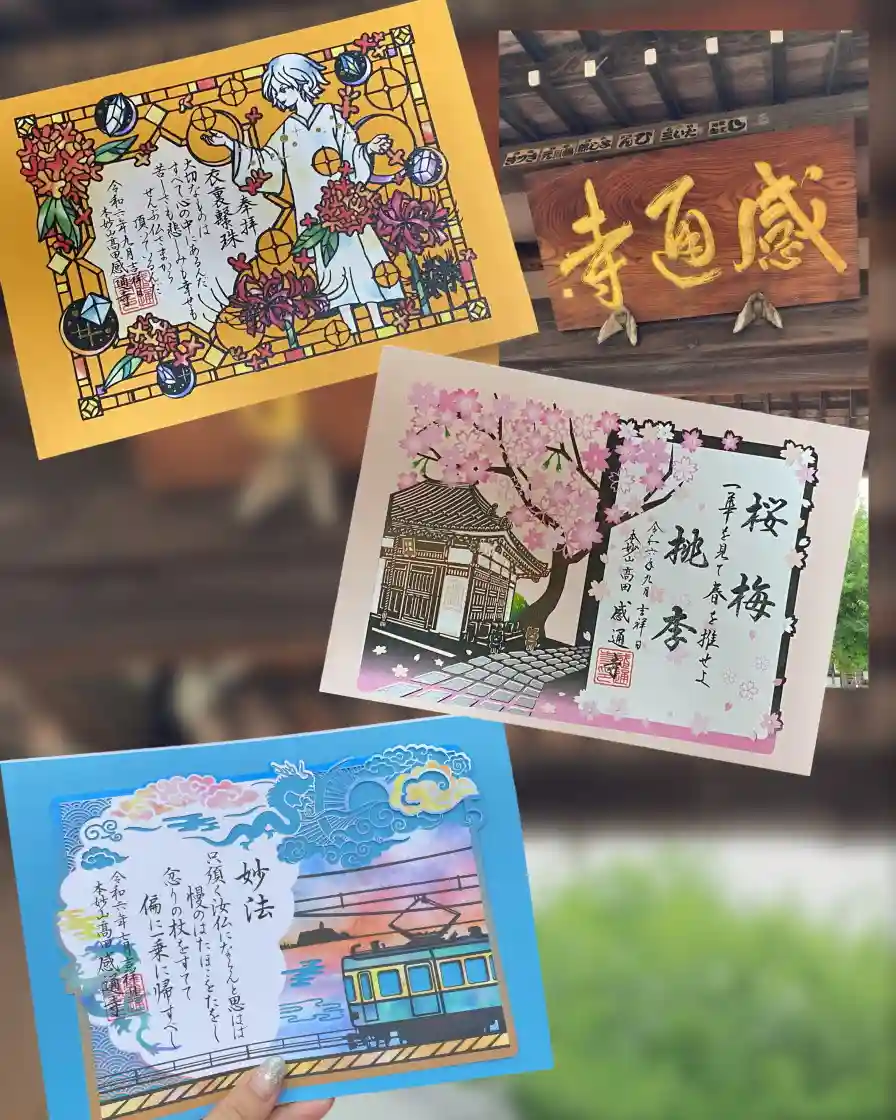 奉拝
衣裏繋珠
大切なものは
すべて心の中にあるんだ、
苦しみも悲しみも幸せも
ぜんぶ仏さまから
令和六年九月吉祥日
本妙山高田感通寺
感通寺
桜梅
桃李
一華を見て春を推せよ
令和六年九月吉祥日
本妙山高田感通寺
妙法
只須く汝仏にならんと思はば
慢のはたほこをたをし
忿りの杖をすてて
偏に一乗に帰すべし
令和六年七月吉祥日
本妙山高田感通寺